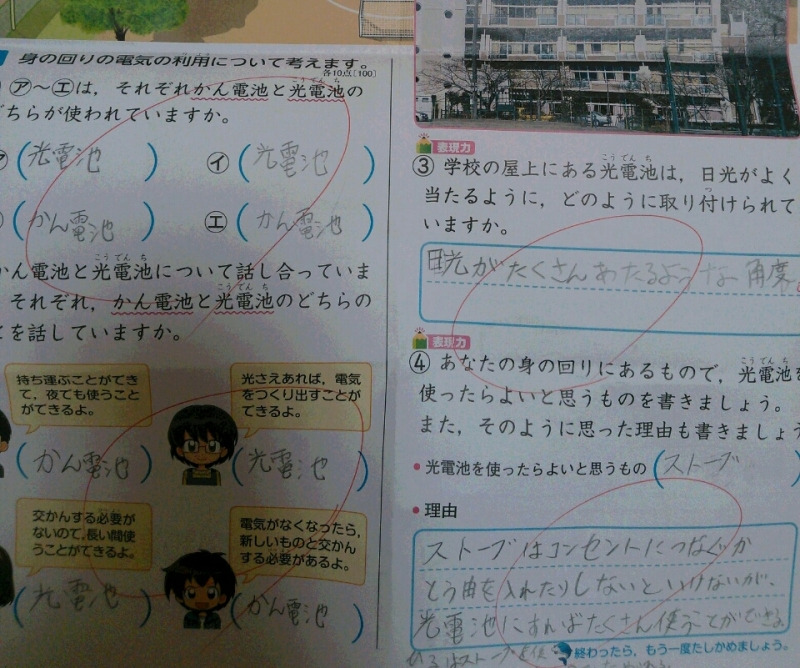 身の回りの電気の利用について考えます。
各10点[100]
㋐～㋓は，それぞれかん電池と光電池の
どちらが使われていますか。
(光電池)
㋑(光電池)
(かん電池)
㋓(かん電池)
かん電池と光電池について話し合っていま
それぞれ，かん電池と光電池のどちらの
とを話していますか。
持ち運ぶことができ
て，夜でも使うこと
ができるよ。
(かん電池)
光さえあれば，電気
をつくり出すことが
できるよ。
(光電池)
交かんする必要が
ないので，長い間使
うことができるよ。
(光電池)
電気がなくなったら，
新しいものと交かん
する必要があるよ。
(かん電池)
表現力
③ 学校の屋上にある光電池は，日光がよく
当たるように，どのように取り付けられて
いますか。
日光がたくさんあたるような角度
表現力
④ あなたの身の回りにあるもので，光電池を
使ったらよいと思うものを書きましょう。
また，そのように思った理由も書きましょう
・光電池を使ったらよいと思うもの(ストーブ)
・理由
ストーブはコンセントにつなぐか
とう由を入れたりしないといけないが、
光電池にすればたくさん使うことができる
終わったら，もう一度たしかめましょう。